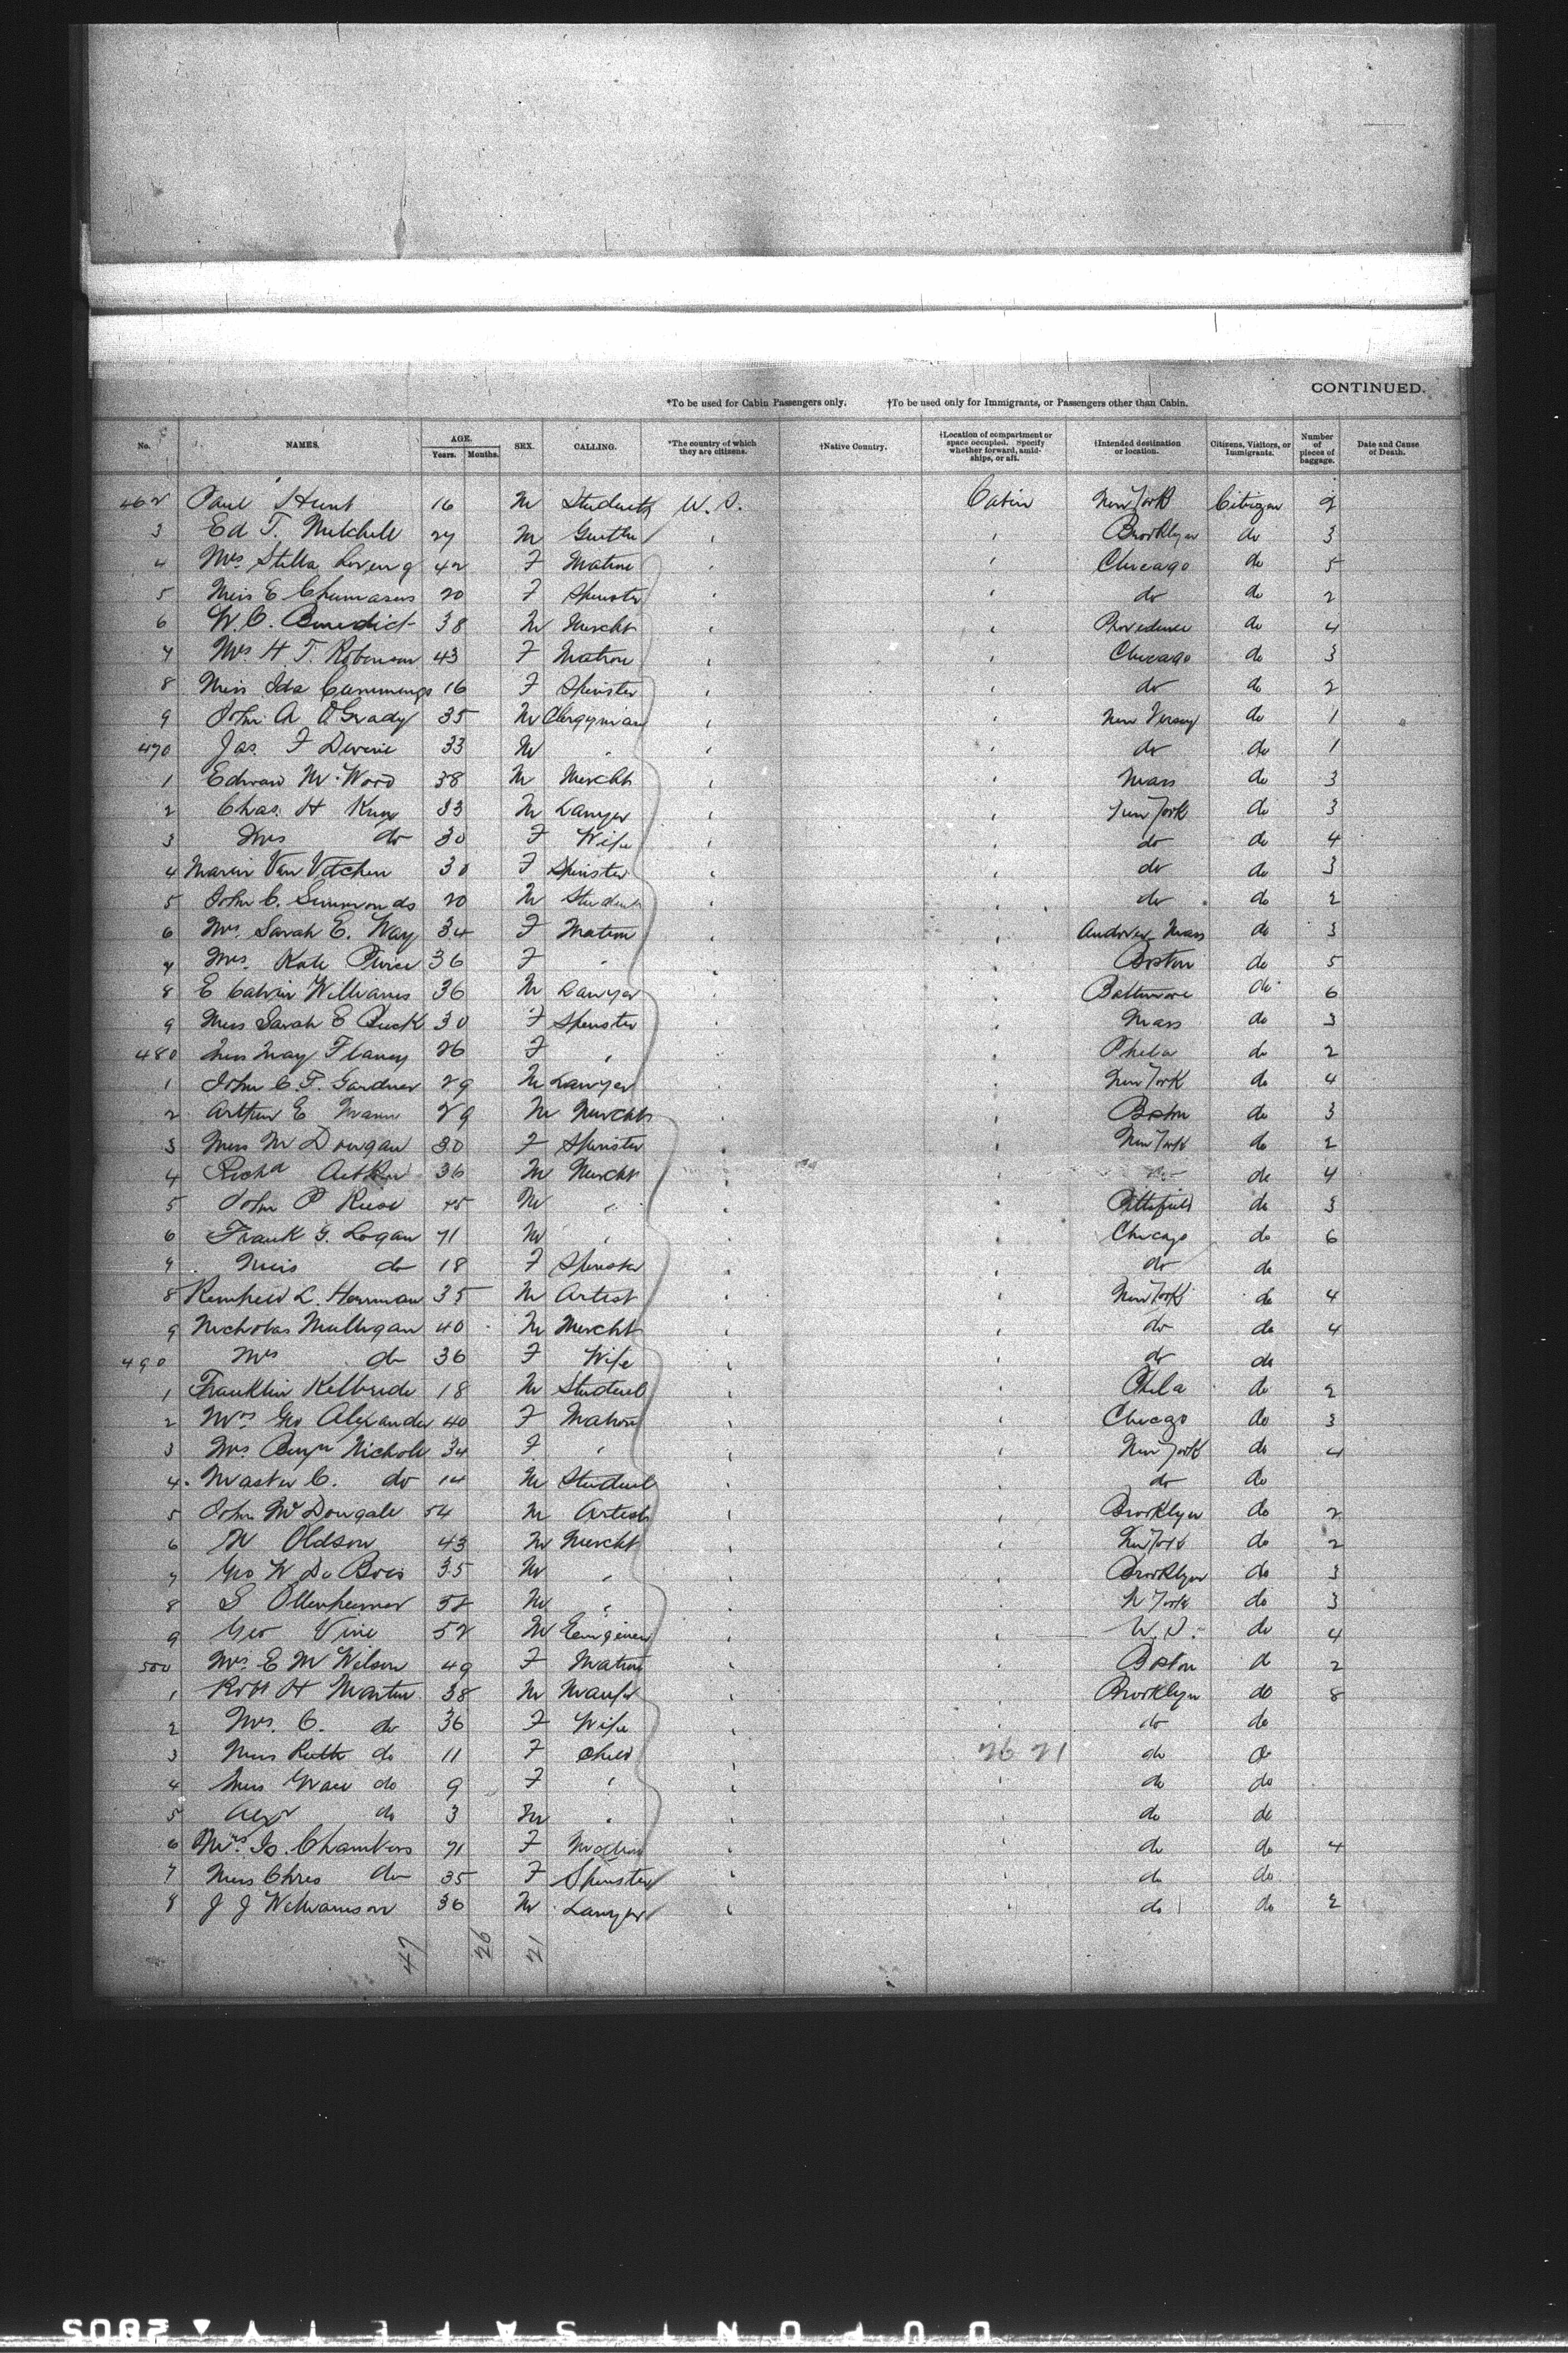 CONTINUED.
*To be used for Cabin Passengers only. †To be used only for Immigrants, or Passengers other than Cabin.
No. NAMES. AGE. Years. Months. SEX. CALLING. *The country of which they are citizens. †Native Country. †Location of compartment or space occupied. Specify whether forward, amidships, or aft. †Intended destination or location. Citizens, Visitors, or Immigrants. Number of pieces of baggage. Date and Cause of Death.
462 Paul Hunt 16 M Student U.S. Cabin New York Citizen 2
3 Ed T. Mitchell 27 M Gentln " " Brooklyn do 3
4 Mrs Stella Loveng 42 F Matron " " Chicago do 5
5 Miss E Chumasero 20 F Spinster " " do do 2
6 W. C. Benedict 38 M Mercht " " Providence do 4
7 Mrs H. T. Robinson 43 F Matron " " Chicago do 3
8 Miss Ida Cummings 16 F Spinster " " do do 2
9 John A O'Grady 35 M Clergyman " " New Jersey do 1
470 Jas. F Devine 33 M " " " do do 1
1 Edward M. Wood 38 M Mercht " " Mass do 3
2 Chas. H King 33 M Lawyer " " New York do 3
3 Mrs do 30 F Wife " " do do 4
4 Van Vetchen 30 F Spinster " " do do 3
5 John C. Simmonds 20 M Student " " do do 2
6 Mrs Sarah E. Way 34 F Matron " " Andover Mass do 3
7 Mrs. Kate Pierce 36 F " " " Boston do 5
8 E Calvin Williams 36 M Lawyer " " Baltimore do 6
9 Miss Sarah E Buck 30 F Spinster " " Mass do 3
480 Miss May Flaney 26 F " " " Phila do 2
1 John C. T. Gardner 29 M Lawyer " " New York do 4
2 Arthur E Mann 29 M Mercht " " Boston do 3
3 Miss M Dougan 30 F Spinster " " New York do 2
4 Richd Aitken 36 M Mercht " " do do 4
5 John P Reese 45 M " " " Pittsfield do 3
6 Frank G. Logan 41 M " " " Chicago do 6
7 Miss do 18 F Spinster " " do do
8 L. Herrman 35 M Artist " " New York do 4
9 Nicholas Mulligan 40 M Mercht " " do do 4
490 Mrs do 36 F Wife " " do do
1 Franklin Kelbride 18 M Student " " Phila do 2
2 Mrs Geo Alexander 40 F Matron " " Chicago do 3
3 Mrs Benjn Nichols 34 F " " " New York do 4
4 Master C. do 14 M Student " " do do
5 John McDougale 54 M Artist " " Brooklyn do 2
6 N Oldson 43 M Mercht " " New York do 2
7 Geo W Du Bois 35 M " " " Brooklyn do 3
8 S Ottenheimer 58 M " " " N York do 3
9 Geo Vine 52 M Engineer " " U.S. do 4
500 Mrs E M Wilson 49 F Matron " " Boston do 2
1 Robt H Martin 38 M Manfr " " Brooklyn do 8
2 Mrs. C. do 36 F Wife " " do do
3 Miss Ruth do 11 F Child " 26 21 do do
4 Miss Grace do 9 F " " " do do
5 Alexr do 3 M " " do do
6 Mrs Is. Chambers 71 F Matron " " do do 4
7 Miss Chris do 35 F Spinster " " do do
8 J J Williamson 36 M Lawyer " " do do 2
47 26 21